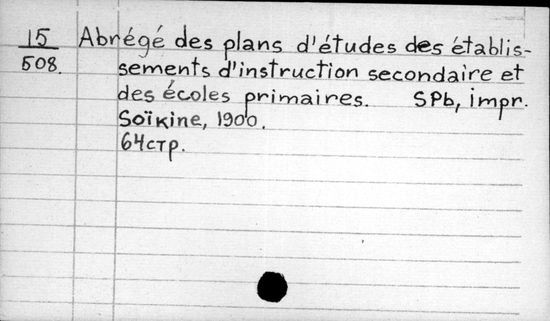 15 Abrégé des plans d'études des établis-
508. sements d'instruction secondaire et
des écoles primaires. SPb, impr.
Soïkine, 1900.
64стр.